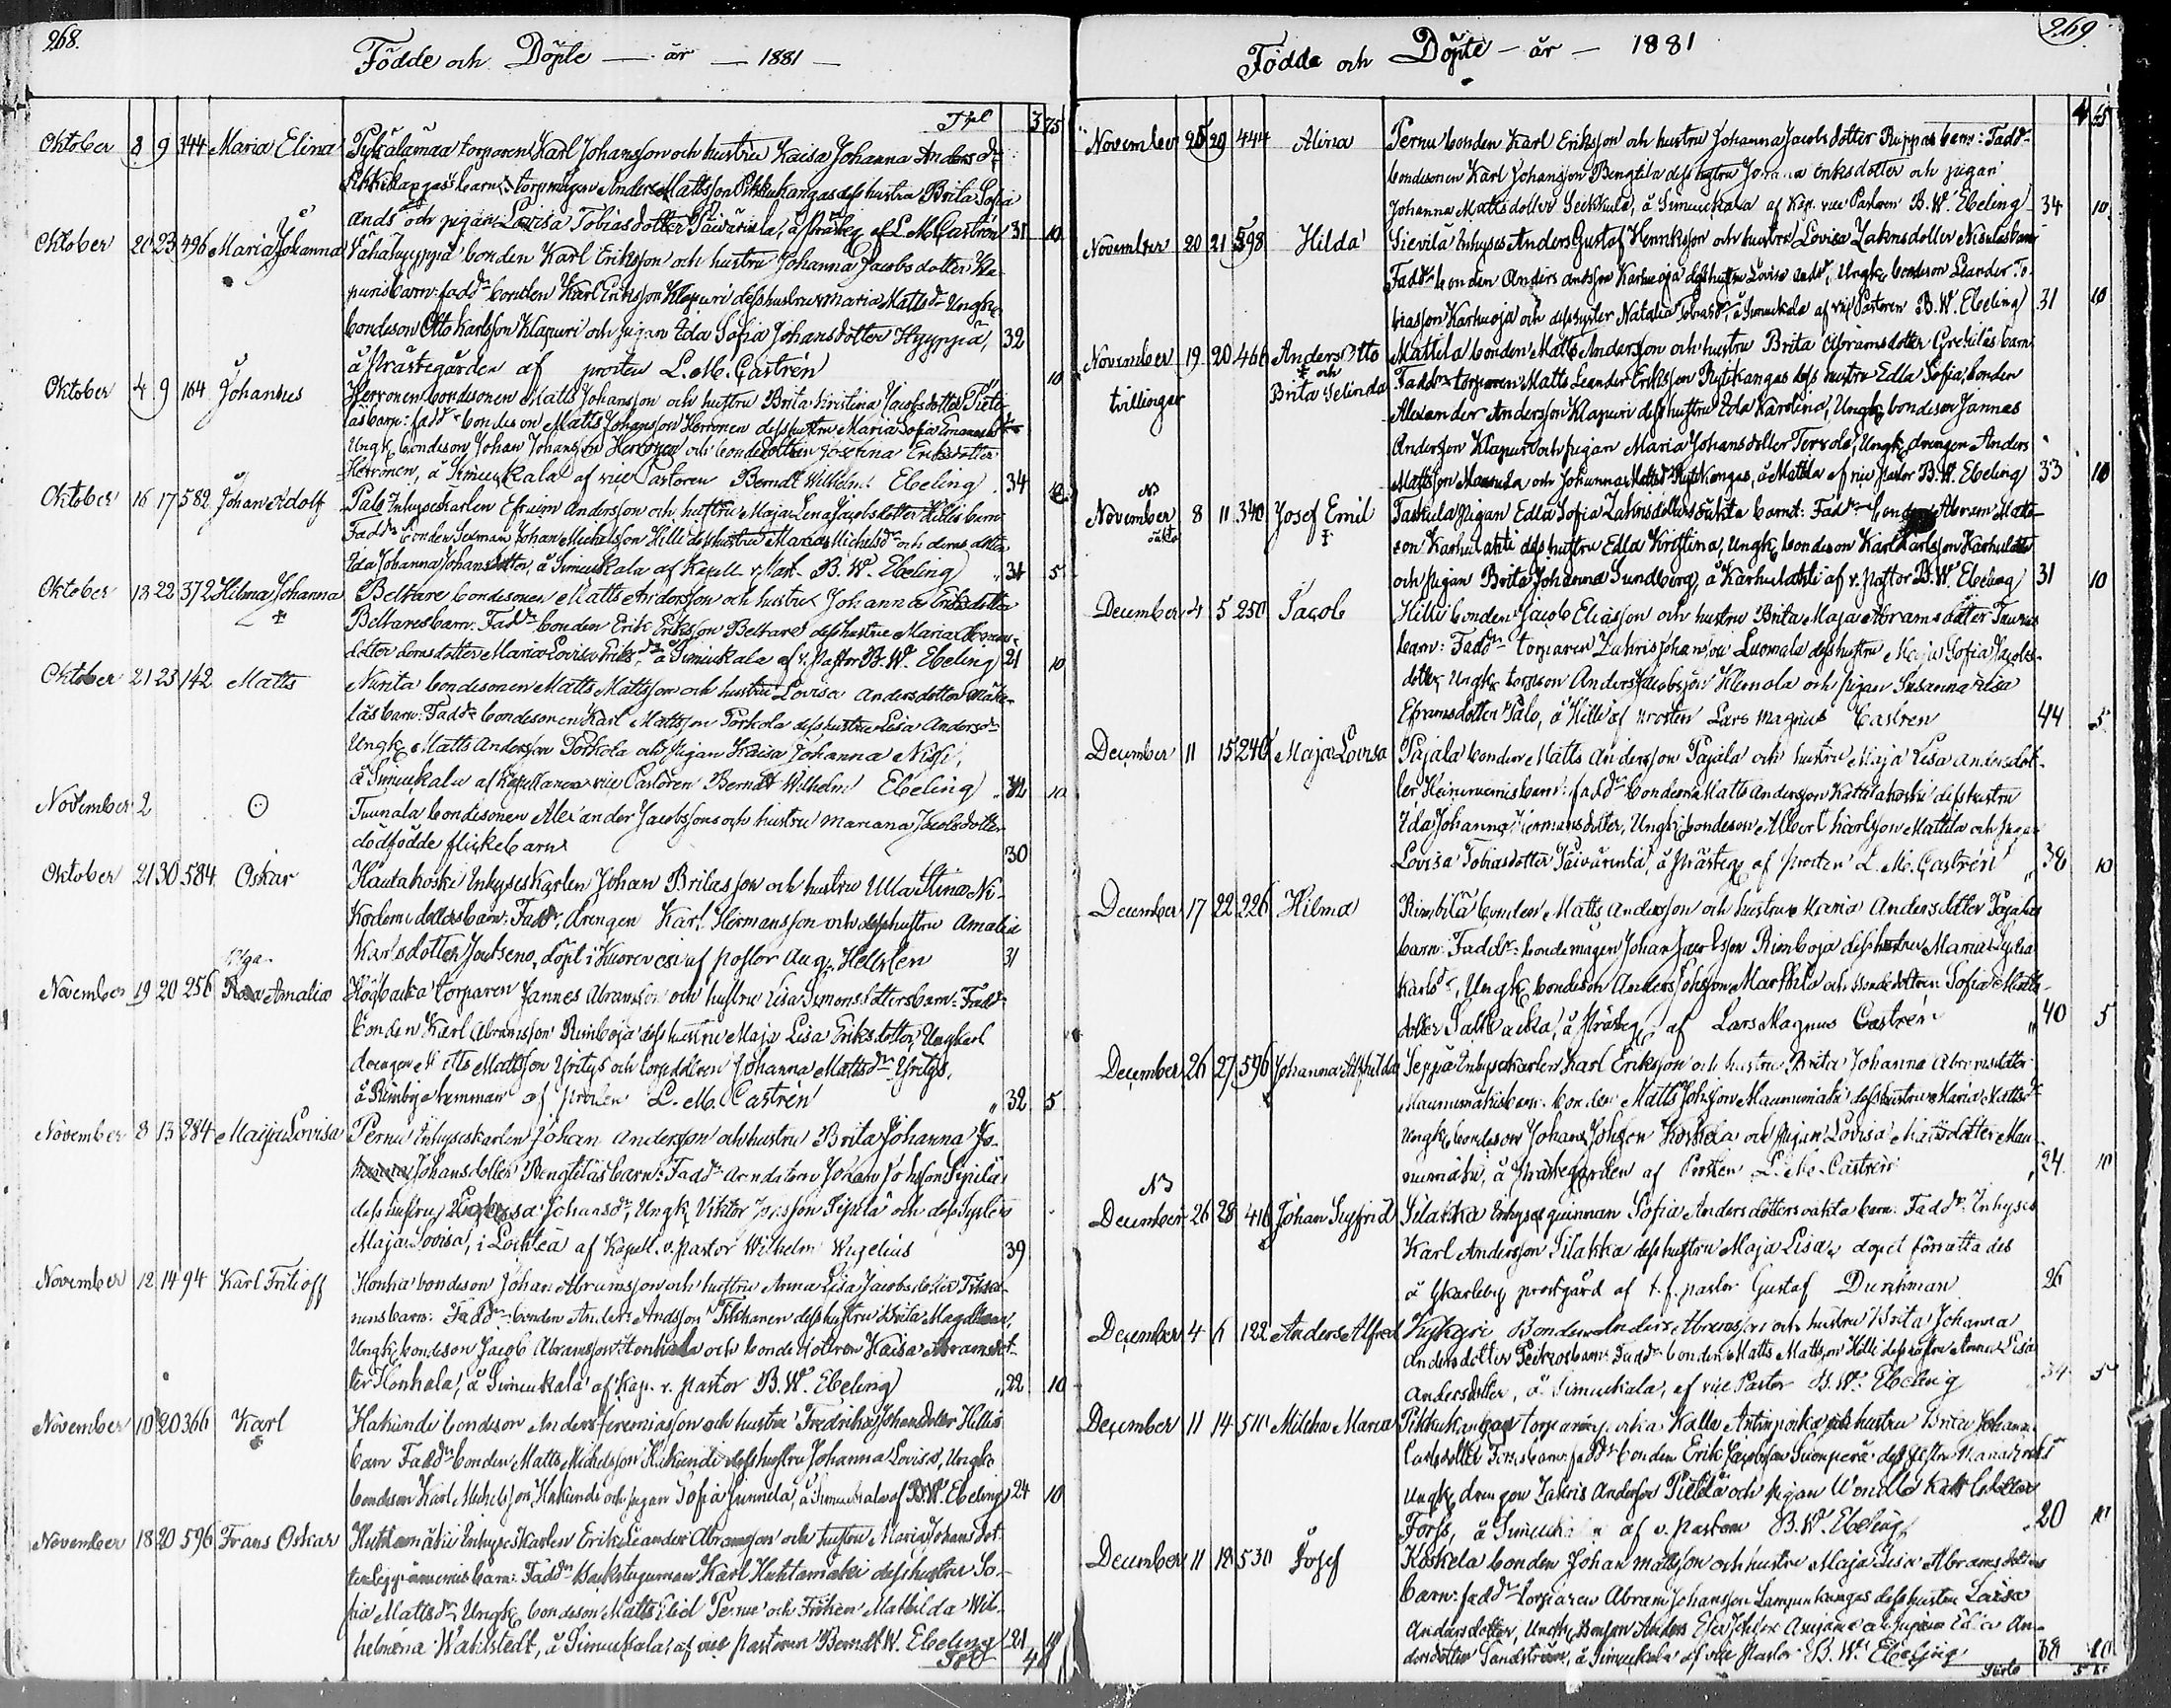 268.
Födde och Döpte — år — 1881 —
Tpl 3 75
Oktober 8 9 344 Maria Elina Pykälämaa torparen Karl Johansson och hustru Kaisa Johanna Anders dr
Pikkukangas barn: torpmågen Anders Mattsson Pikkukangas dess hustru Brita Sofia
Ands dr och pigan Lovisa Tobiasdotter Päivärinta, å Prästeg. af L. M. Castrén 31 10
Oktober 20 23 496 Maria Johanna Vähähyyppä bonden Karl Eriksson och hustru Johanna Jacobsdotter Kla-
puris barn: fadd: bonden Karl Eriksson Klapuri dess hustru Maria Matts dr Ungk.
bondeson Otto Karlsson Klapuri och pigan Ida Sofia Johansdotter Hyyppä, 32
å Prästegården af prosten L. M. Castrén 10
Oktober 4 9 164 Johannes Herronen bondesonen Matts Johansson och hustru Brita Kristina Jacobsdotter Pietі-
läs barn: fadd: bondeson Matts Johansson Herronen dess hustru Maria Sofia
Ungk. bondeson Johan Johansson Herronen och bondedottren Josefina Eriksdotter
Herronen, å Simuukala af vice Pastoren Berndt Wilhelm Ebeling 34
Oktober 16 17 582 Johan Adolf Palo Inhyseskarlen Efraim Andersson och hustru Maja Lena Jacobsdotter Hillis barn
Fadd: bonden Sexman Johan Michelsson Hilli dess hustru Maria Michels dr och deras dotter
Ida Johanna Johansdotter, å Simuukala af Kapell. v. Past. B. W. Ebeling 34 5
Oktober 13 22 372 Hilma Johanna Beltare bondesonen Matts Andersson och hustru Johanna Eriksdotter
Beltares barn: Fadd: bonden Erik Eriksson Beltare dess hustru Maria Abrams-
dotter deras dotter Maria Lovisa Eriks dr å Simuukala af v. Pastor B. W. Ebeling 21 10
Oktober 21 23 142 Matts Nurila bondesonen Matts Mattsson och hustru Lovisa Andersdotter Mäke-
läs barn: Fadd: bondesonen Karl Mattsson Porkola dess hustru Lisa Anders dr
Ungk. Matts Andersson Porkola och Pigan Kaisa Johanna Nissi,
å Simuukala af Kapellanen vice Pastoren Berndt Wilhelm Ebeling 32 10
November 2 Tuunala bondesonen Alexander Jacobssons och hustru Mariana Jacobsdotter
dödfödde flickebarn 30
Oktober 21 30 584 Oskar Hautakoski Inhyseskarlen Johan Britasson och hustru Ulla Stina Ni-
kodemidotters barn: Fadd: drengen Karl Hermansson och dess hustru Amalia
Karlsdotter Joutseno, döpt i Kuorevesi af Pastor Aug. Hellsten 31
November 19 20 256 Olga Amalia Högbacka torparen Jannes Abramsson och hustru Lisa Simonsdotters barn: Fadd:
bonden Karl Abramsson Rimboja dess hustru Maja Lisa Eriksdotter, Ungkarl
drengen Matts Mattsson Yritys och torpdottren Johanna Matts dr Yritys,
å Rimboja hemman af prosten L. M. Castrén 32 5
November 8 13 284 Maija Lovisa Pernu Inhyseskarlen Johan Andersson och hustru Brita Johanna Jo-
hanna Johansdotter Bengtiläs barn: Fadd: Arendatorn Johan Johsson Sipilä
dess hustru Johans dr, Ungk. Viktor Johsson Sipilä och dess Syster
Maja Lovisa, i Lochteå af Kapell. v. Pastor Wilhelm Wegelius 39
November 12 14 94 Karl Fritioff Honka bondeson Johan Abramsson och hustru Anna Lisa Jacobsdotter Tikka-
nens barn: Fadd: bonden Anders Andsson Tikkanen dess hustru Brita Magdalena,
Ungk. bondeson Jacob Abramsson Honkala och bondedottren Kaisa Abramsdot-
ter Honkala, å Simuukala af Kap. v. Pastor B. W. Ebeling 22 10
November 10 20 366 Karl Hakunde bondeson Anders Jeremiasson och hustru Fredrika Johansdotter Hillis
barn Fadd: bonden Matts Michelsson Hakunde dess hustru Johanna Lovisa, Ungk.
bondeson Karl Michelsson Hakunde och pigan Sofia Junnila, å Simuukala af B. W. Ebeling 24 10
November 18 20 596 Frans Oskar Huhtamäki Inhyseskarlen Erik Leander Abramsson och hustru Maria Johansdot-
ter Leppäniemis barn: Fadd: Backstuguman Karl Huhtamäki dess hustru So-
fia Matts dr, Ungk. bondeson Matts Elid Pernu och Fröken Mathilda Wil-
helmina Wahlstedt, å Simuukala af vice Pastoren Berndt W. Ebeling 21 10
269
Födde och Döpte — år — 1881
November 25 29 444 Alina Pernu bonden Karl Eriksson och hustru Johanna Jacobsdotter Ruppas barn: Fadd:
bondesonen Karl Johansson Bengtila dess hustru Johanna Eriksdotter och pigan
Johanna Mattsdotter Seikkula, å Simuukala af Kap. vice Pastoren B. W. Ebeling 34 10
November 20 21 598 Hilda Sievilä Inhyses Anders Gustaf Henriksson och hustru Lovisa Zakrisdotter Nisulas barn
Fadd: bonden Anders Andsson Karhuoja dess hustru Lovisa Ands dr, Ungk. bondeson Leander To-
biasson Karhuoja och dess syster Natalia Tobias dr, å Simuukala af vice Pastoren B. W. Ebeling 31 10
November 19 20 466 Anders Otto och Brita Selinda Mattila bonden Matts Andersson och hustru Brita Abramsdotter Grekiläs barn
tvillingar Fadd: torparen Matts Leander Eriksson Rytikangas dess hustru Edla Sofia, bonden
Alexander Andersson Klapuri dess hustru Ida Karolina, Ungk. bondeson Jannes
Andersson Klapuri och pigan Maria Johansdotter Tervola, Ungk. drengen Anders
Mattsson Maunula och Johanna Matts dr Rytikangas, å Mattila af vice Pastor B. W. Ebeling 33 10
NB
November 8 11 340 Josef Emil Taskula Pigan Edla Sofia Zakrisdotters oäkta barnet: Fadd: bonden Abram Mats-
oäkta son Karhulahti dess hustru Edla Kristina, Ungk. bondeson Karl Karlsson Karhulahti
och Pigan Brita Johanna Sundberg, å Karhulahti af v. Pastor B. W. Ebeling 31 10
December 4 5 250 Jacob Hilli bonden Jacob Eliasson och hustru Brita Maja Abramsdotter Taurus
barn: Fadd: torparen Zakris Johansson Luomala dess hustru Maja Sofia Jacobs-
dotter, Ungk. torpson Anders Jacobsson Heimola och pigan Susanna Lisa
Eframsdotter Palo, å Hilli af prosten Lars Magnus Castrén 44 5
December 11 15 246 Maja Lovisa Pajala bonden Matts Andersson Pajala och hustru Maja Lisa Andersdot-
ter Heinuniemis barn: fadd: bonden Matts Andersson Kattilakoski dess hustru
Ida Johanna Hermansdotter, Ungk. bondeson Albert Karlsson Mattila och pigan
Lovisa Tobiasdotter Päivärinta, å Prästeg. af prosten L. M. Castrén 38 10
December 17 22 226 Hilma Rimbilä bonden Matts Andersson och hustru Maria Andersdotter Pajalas
barn: Fadd: bondemågen Johan Jacobsson Rimboja dess hustru Maria Lydia
Karls dr, Ungk. bondeson Anders Johsson Marthila och bondedottren Sofia Matts-
dotter Sallbacka, å Prästeg. af Lars Magnus Castrén 40 5
December 26 27 596 Johanna Alfhilda Seppä Inhyseskarlen Karl Eriksson och hustru Brita Johanna Abramsdotter
Maunumäkis barn: bonden Matts Johsson Maunumäki dess hustru Maria Matts dr
Ungk. bondeson Johan Johsson Koskela och pigan Lovisa Mattsdotter Mau-
numäki, å Prästegården af Prosten L. M. Castrén 24 10
NB
December 26 28 416 Johan Sigfrid Silakka Inhyses quinnan Sofia Andersdotters oäkta barn: Fadd: Inhyses
Karl Andersson Silakka dess hustru Maja Lisa, dopet förrättades
å Gkarleby prostgård af t. f. pastor Gustaf Durchman 26
December 4 6 122 Anders Alfred Bonden Anders Abramsson och hustru Brita Johanna
Andersdotter Peitsos barn: Fadd: bonden Matts Mattsson Hilli dess hustru Anna Lisa
Andersdotter, å Simuukala, af vice Pastor B. W. Ebeling 34 5
December 11 14 511 Milda Maria Pikkukangas torparen Kalle Antinpoika och hustru Brita Johanna
Carlsdotter Forss barn: fadd: bonden Erik Jacobsson Suonperä dess hustru Maria Eriks dr
Ungk. drengen Zakris Andersson Pietilä och pigan Wendla Karlsdotter
Forss, å Simuukala af v. Pastorn B. W. Ebeling 20 10
December 11 18 530 Josef Koskela bonden Johan Mattsson och hustru Maja Lisa Abramsdotters
barn: fadd: torparen Abram Johansson Lampunkangas dess hustru Caisa
Andersdotter, Ungk. bonson Anders och pigan An-
dersdotter Sandström, å Simuukala af vice Pastor B. W. Ebeling 38 10